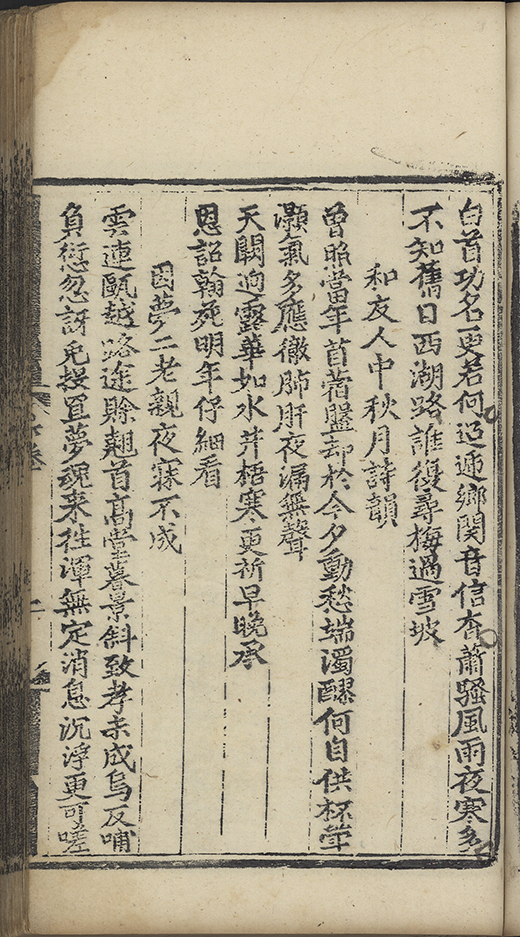 白首功名更若何迢遞鄉関音信杳蕭騷風雨夜寒多
不知舊日西湖路誰復尋梅過雪坡
和友人中秋月詩韻
曾照當年苜蓿盤却於今夕動愁端濁醪何自供杯斝
灝氣多應徹肺肝夜漏無聲
天闕逈露華如水井梧寒更祈早晚承
恩詔翰苑明年仔細看
因夢二老親夜寐不成
雲連甌越路途賒翹首高堂暮景斜致孝未成烏反哺
負愆忽訝兎投罝夢魂来徃渾無定消息沉浮更可嗟